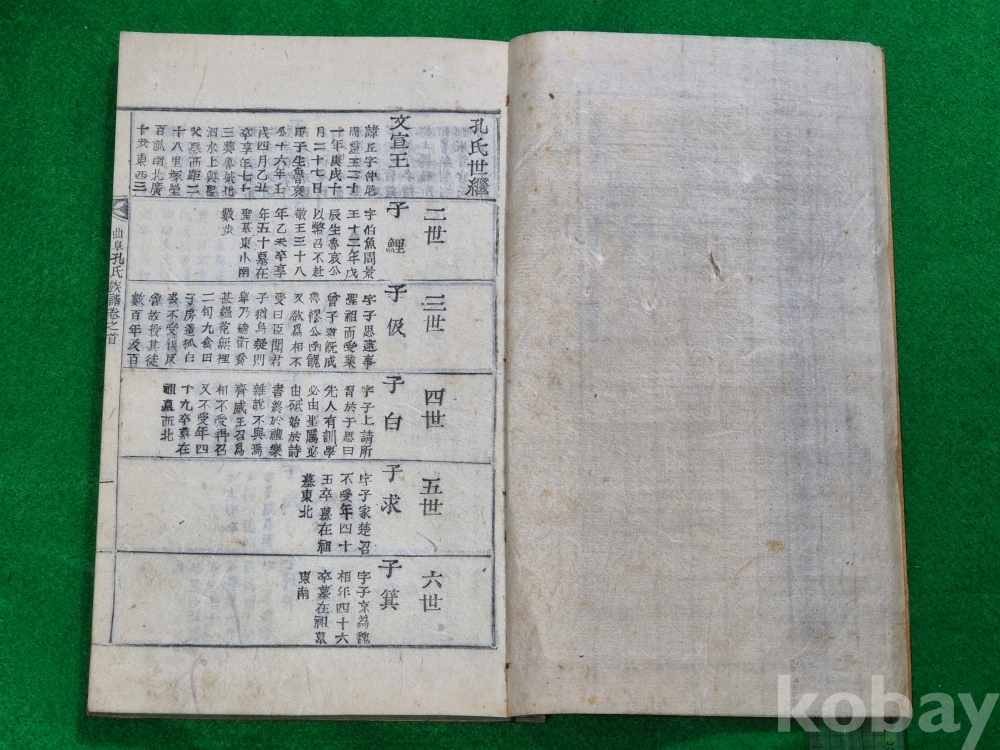 孔氏世繼
文宣王
諱丘字仲尼
周靈王二十
一年庚戌十
月二十七日
庚子生魯哀
公十六年壬
戌四月乙丑
卒享年七十
三葬魯城北
泗水上與聖
父墓西距二
十八里塚塋
百畝南北廣
十步東西三
二世
子鯉
字伯魚周景
王十二年戊
辰生魯哀公
以幣召不赴
敬王三十八
年乙未卒享
年五十墓在
聖墓東小南
數步
三世
子伋
字子思逮事
聖祖而受業
曾子
魯繆公
又欲爲相不
受曰臣聞君
子猶鳥疑則
擧乃適衛
甚縕袍無裡
二旬九食田
子方遺狐白
裘不受復反
魯敎授其徒
數百年及百
四世
子白
字子上請所
習於子思曰
先人有訓學
必由聖厲必
由砥始於詩
書終於禮樂
雜說不與焉
齊威王召爲
相不受再召
又不受年四
十九卒墓在
祖墓西北
五世
子求
字子家楚召
不受年四十
五卒墓在祖
墓東北
六世
子箕
字子京爲魏
相年四十六
卒墓在祖墓
東南
曲阜孔氏族譜卷之首
一
kobay